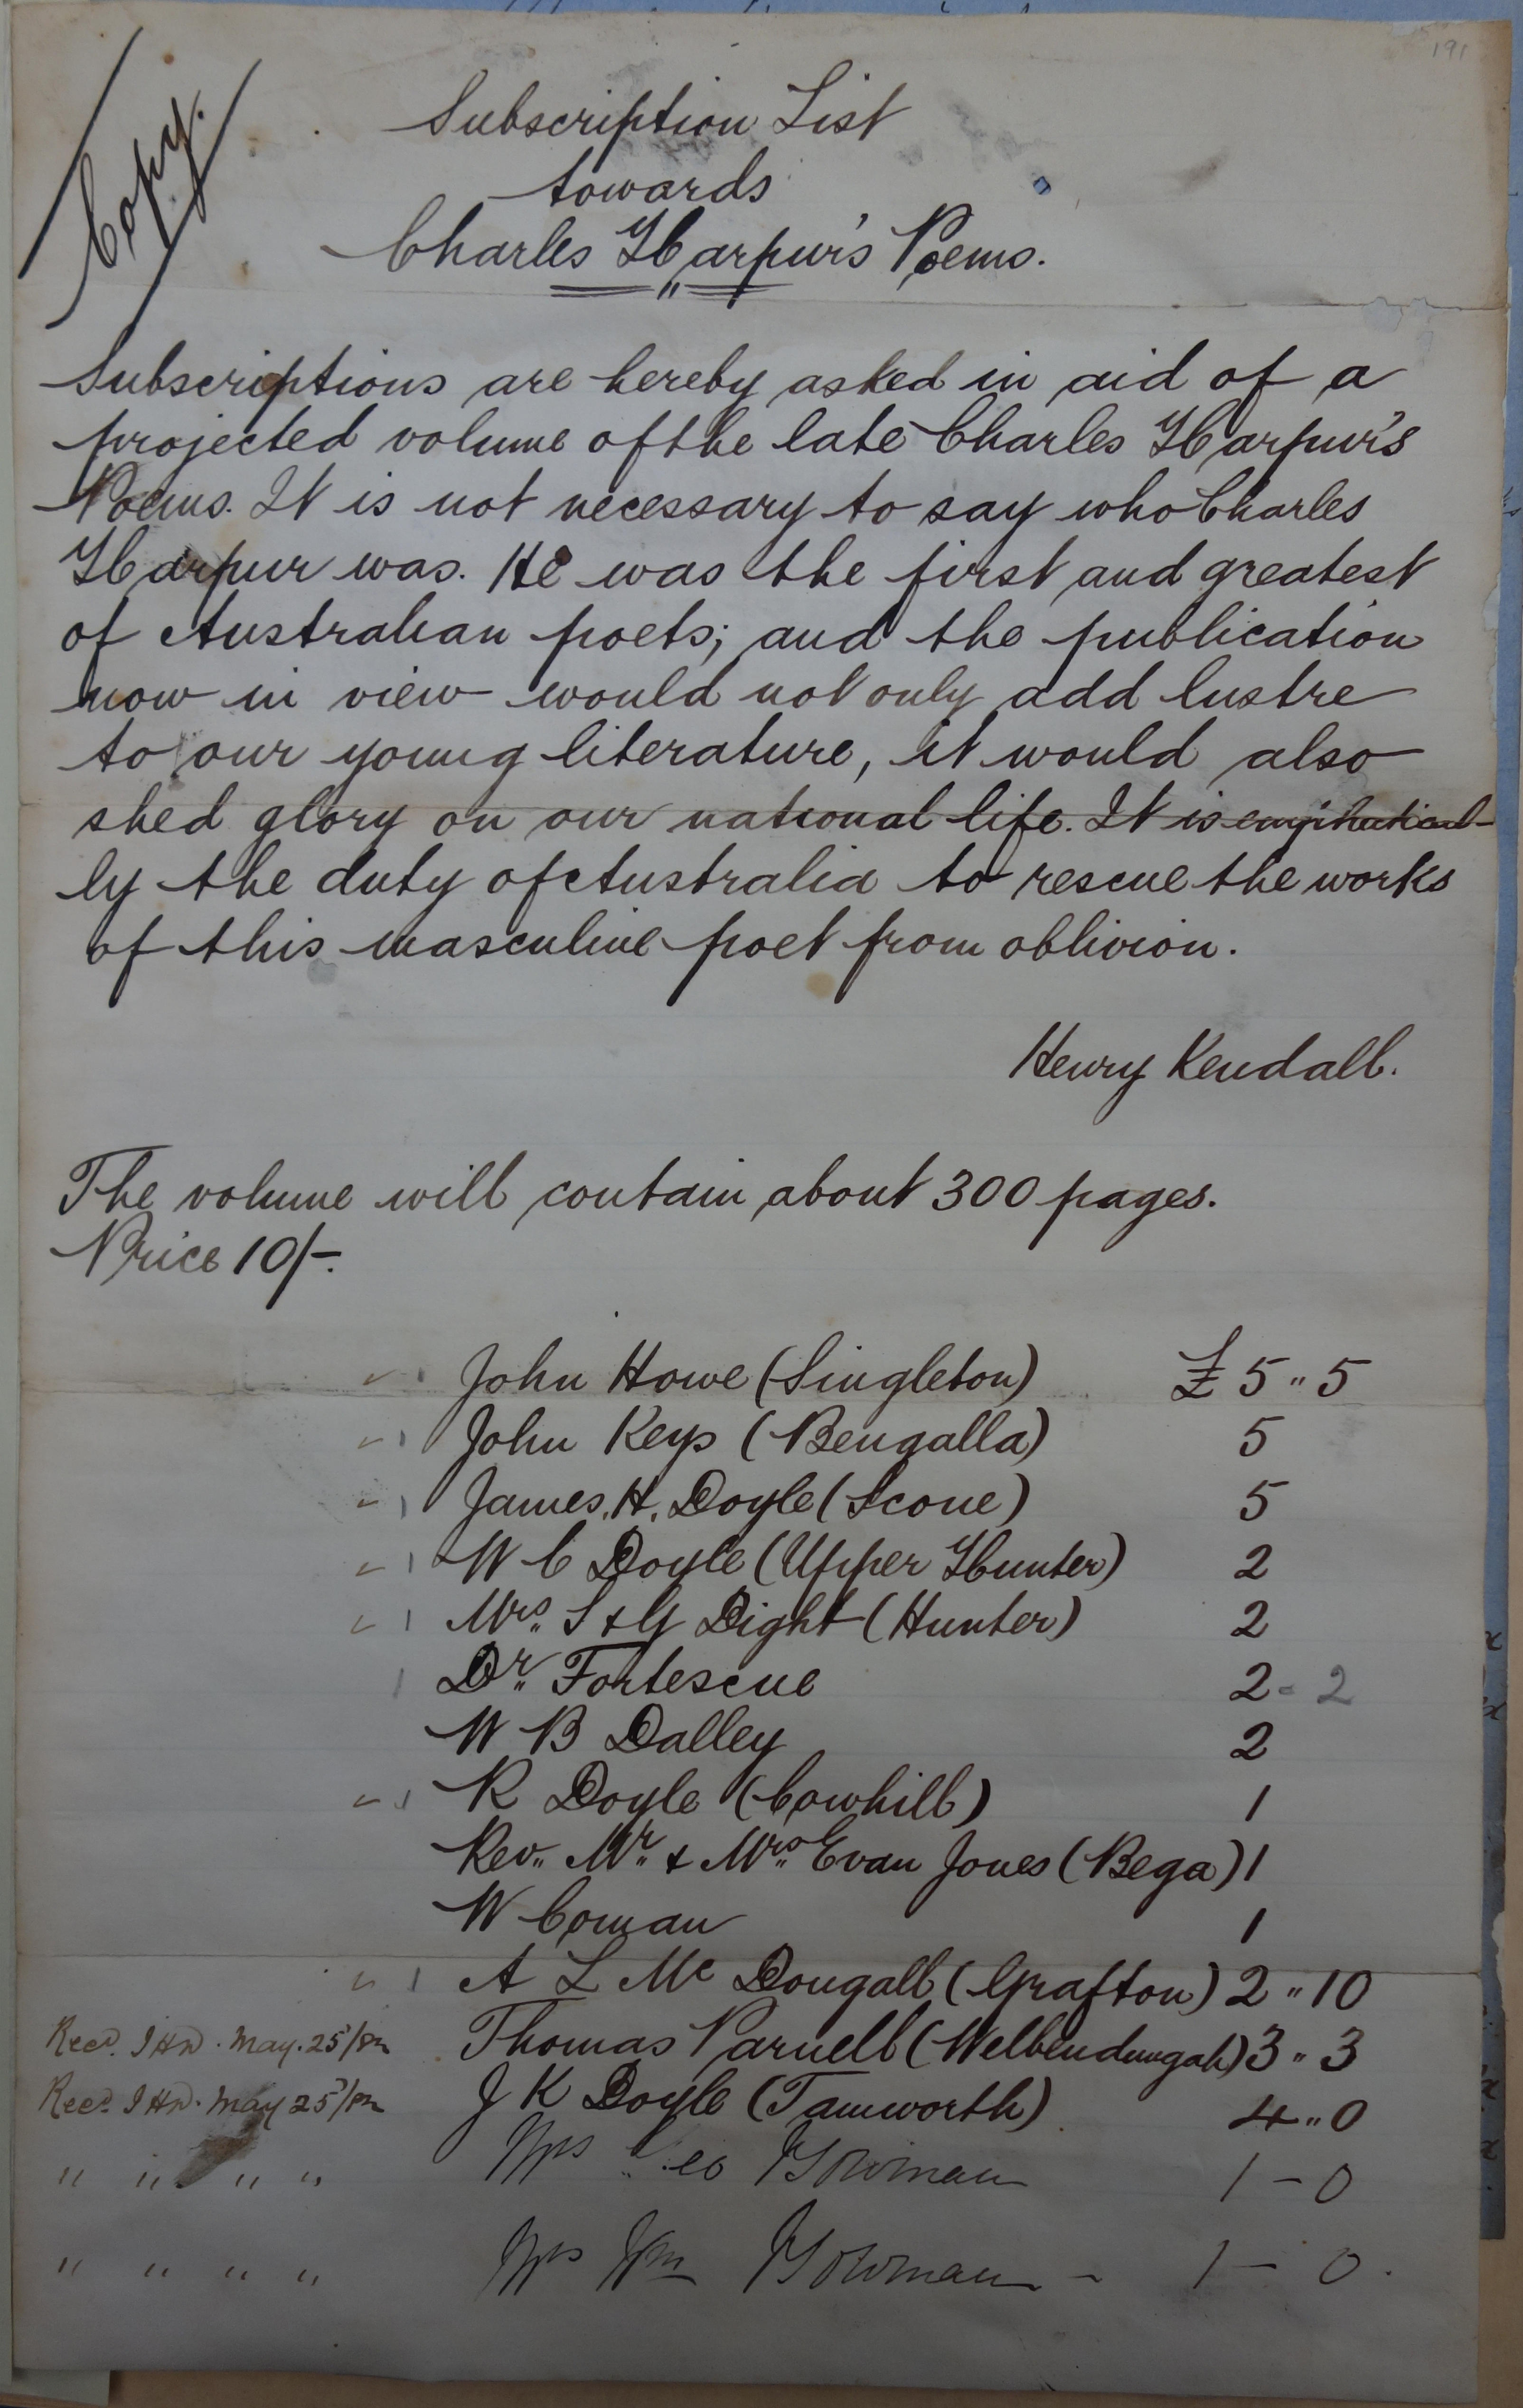 191
Copy.
Subscription List
towards
Charles Harpur's Poems.
Subscriptions are hereby asked in aid of a
projected volume of the late Charles Harpur's
Poems. It is not necessary to say who Charles
Harpur was. He was the first and greatest
of Australian poets; and the publication
now in view would not only add lustre
to our young literature, it would also
shed glory on our national life. It is emphatical-
ly the duty of Australia to rescue the works
of this masculine poet from oblivion.
Henry Kendall.
The volume will contain about 300 pages.
Price 10/-.
John Howe (Singleton) £ 5 " 5
John Keys (Bengalla) 5
James. H. Doyle (Scone) 5
W C Doyle (Upper Hunter) 2
Mrs. S & G Dight (Hunter) 2
Dr. Fortescue 2 - 2
W B Dalley 2
R Doyle (Cowhill) 1
Rev. Mr. & Mrs. Evan Jones (Bega) 1
W Coman 1
A L Mc Dougall (Grafton) 2 " 10
Recd. May. 25/82 Thomas Parnell (Welbendungah) 3 " 3
Recd. May 25/82 J K Doyle (Tamworth) 4 " 0
" " " " Mrs Geo Bowman 1 - 0
" " " " Mrs Wm Bowman - 1 - 0.